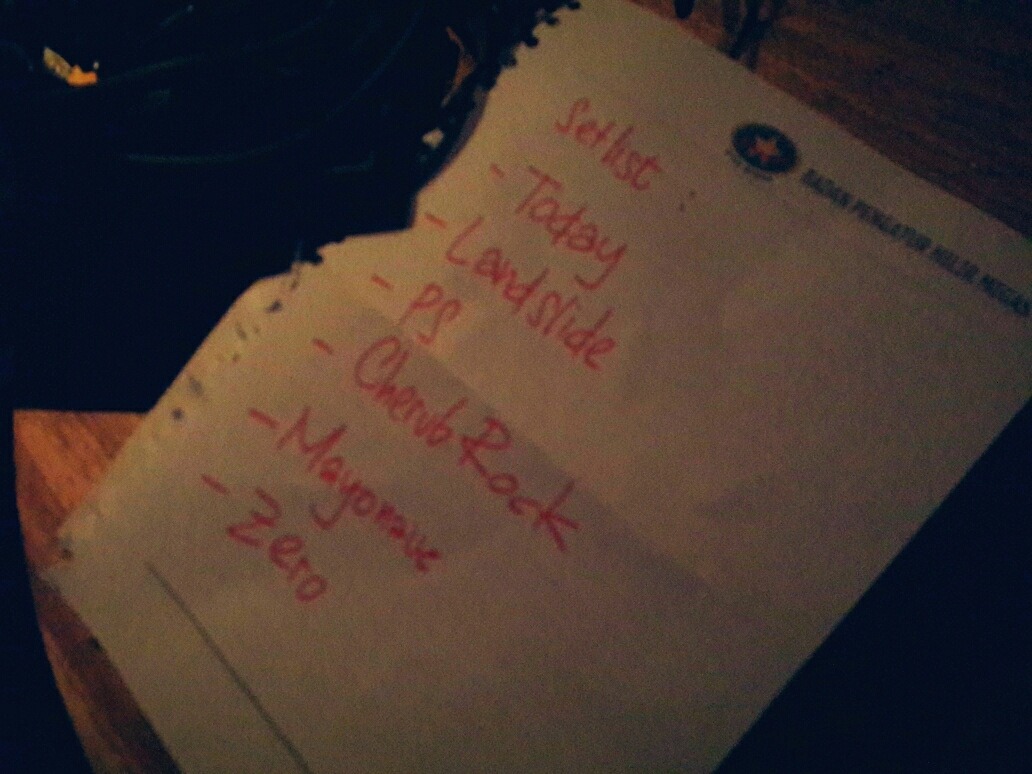 Setlist :
- Today
- Landslide
- PS
- Cherub Rock
- Mayonaue
- Zero
BADAN PENGATUR HILIR MIGAS